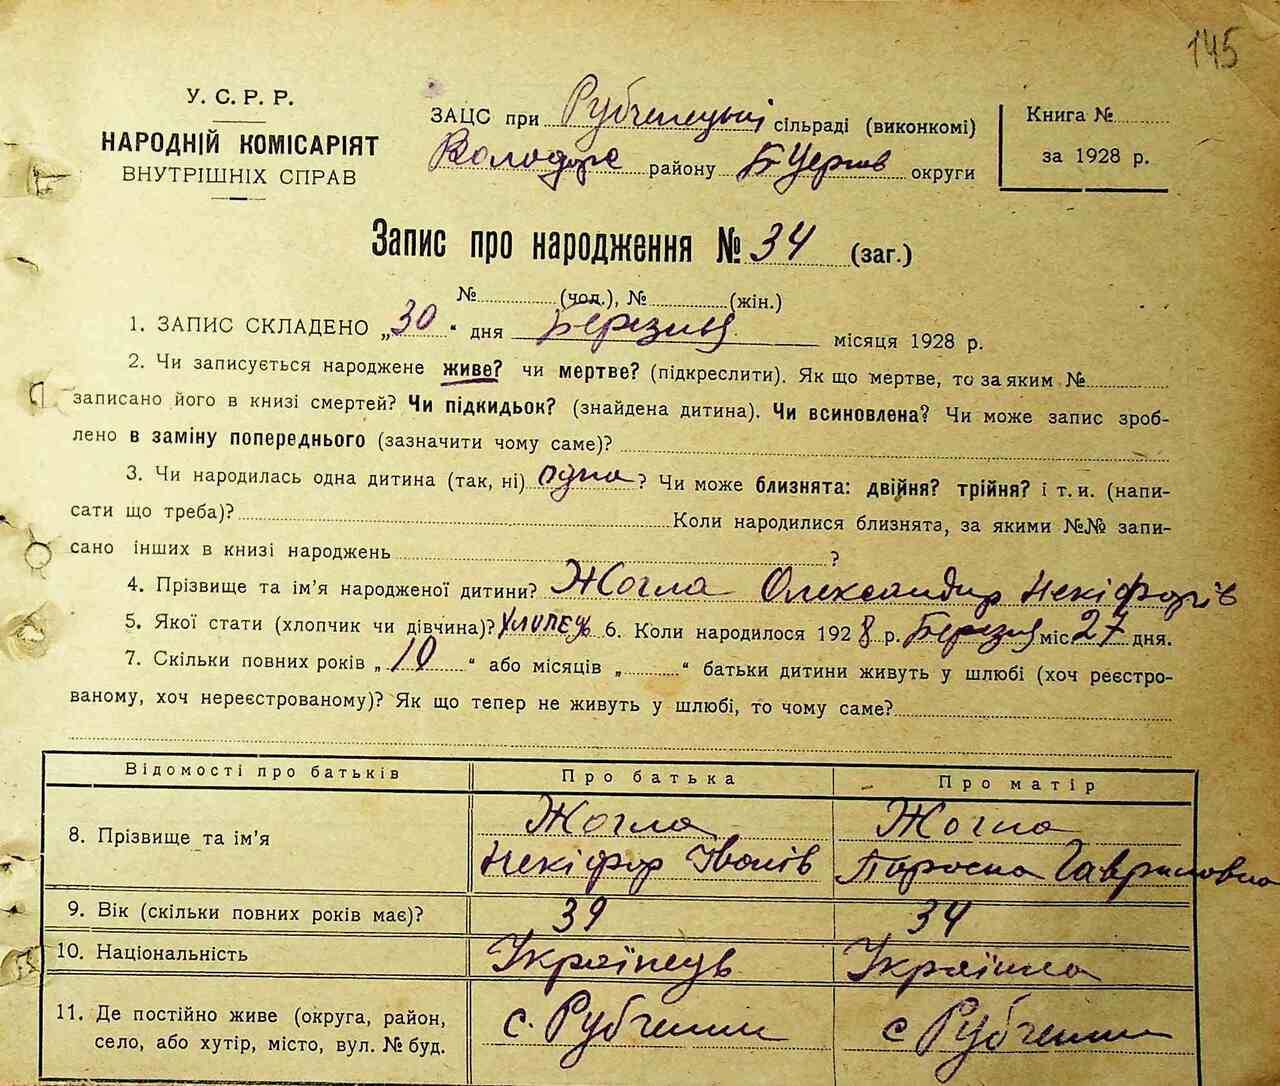 145
У. С. Р. Р.
НАРОДНІЙ КОМІСАРІЯТ
ВНУТРІШНІХ СПРАВ
ЗАЦС при Рубченецькій сільраді (виконкомі)
Володарс району Б Церков округи
Книга №
за 1928 р.
Запис про народження № 34 (заг.)
№ (чол.), № (жін.)
1. ЗАПИС СКЛАДЕНО „30“ дня Березня місяця 1928 р.
2. Чи записується народжене живе? чи мертве? (підкреслити). Як що мертве, то за яким №
записано його в книзі смертей? Чи підкидьок? (знайдена дитина). Чи всиновлена? Чи може запис зроб-
лено в заміну попереднього (зазначити чому саме)?
3. Чи народилась одна дитина (так, ні) одна? Чи може близнята: двійня? трійня? і т. и. (напи-
сати що треба)? Коли народилися близнята, за якими №№ запи-
сано інших в книзі народжень ?
4. Прізвище та ім’я народженої дитини? Жогла Олександр Некіфорів
5. Якої стати (хлопчик чи дівчина)? хлопець 6. Коли народилося 1928 р. Березня міс 27 дня.
7. Скільки повних років „10“ або місяців „ “ батьки дитини живуть у шлюбі (хоч реєстро-
ваному, хоч нереєстрованому)? Як що тепер не живуть у шлюбі, то чому саме?
Відомості про батьків Про батька Про матір
8. Прізвище та ім’я
Жогла
Некіфор Іванів
Жогла
Параска Гавриловна
9. Вік (скільки повних років має)? 39 34
10. Національність Українець Українка
11. Де постійно живе (округа, район,
село, або хутір, місто, вул. № буд.
с. Рубченки
с Рубченки